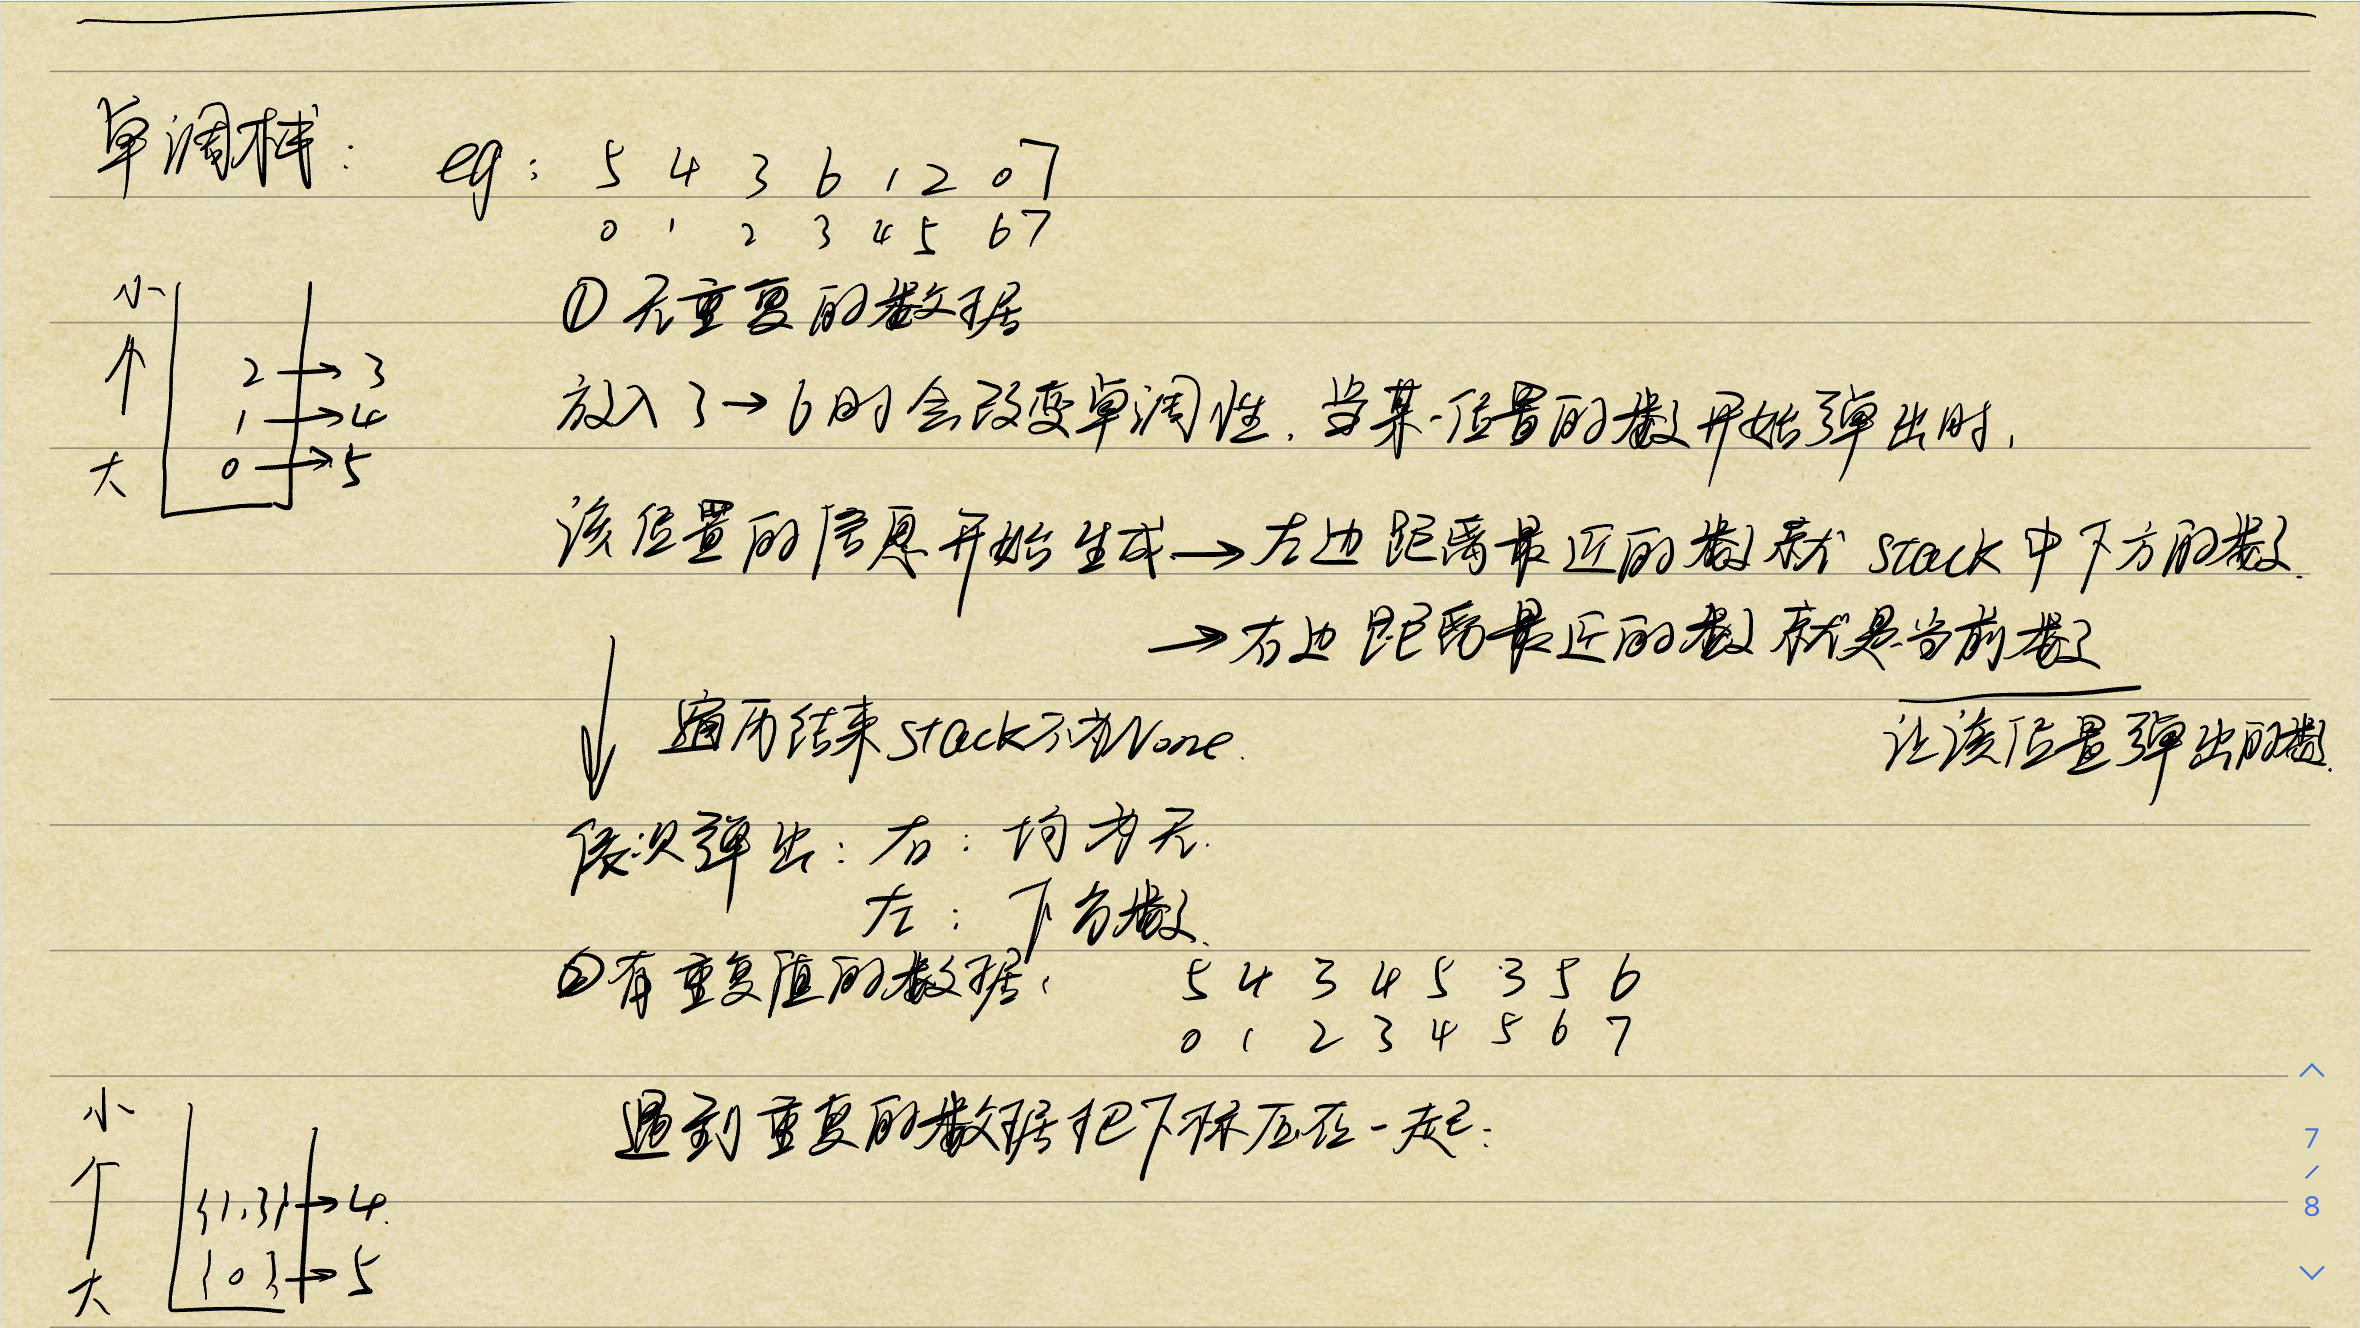 单调栈: eg: 5 4 3 6 1 2 0 7
0 1 2 3 4 5 6 7
小
① 无重复的数据
2 → 3
1 → 4
大 0 → 5
放入 3 → 6 时会改变单调性. 当某一位置的数开始弹出时,
该位置的信息开始生成 → 左边距离最近的数就 stack 中下方的数.
→ 右边距离最近的数就是当前数
让该位置弹出的数.
遍历结束 stack 不为 None.
依次弹出: 右: 均为无.
左: 下方数.
② 有重复值的数据, 5 4 3 4 5 3 5 6
0 1 2 3 4 5 6 7
小
遇到重复的数据把下标压在一起:
{1,3} → 4.
大 {0} → 5
7
/
8